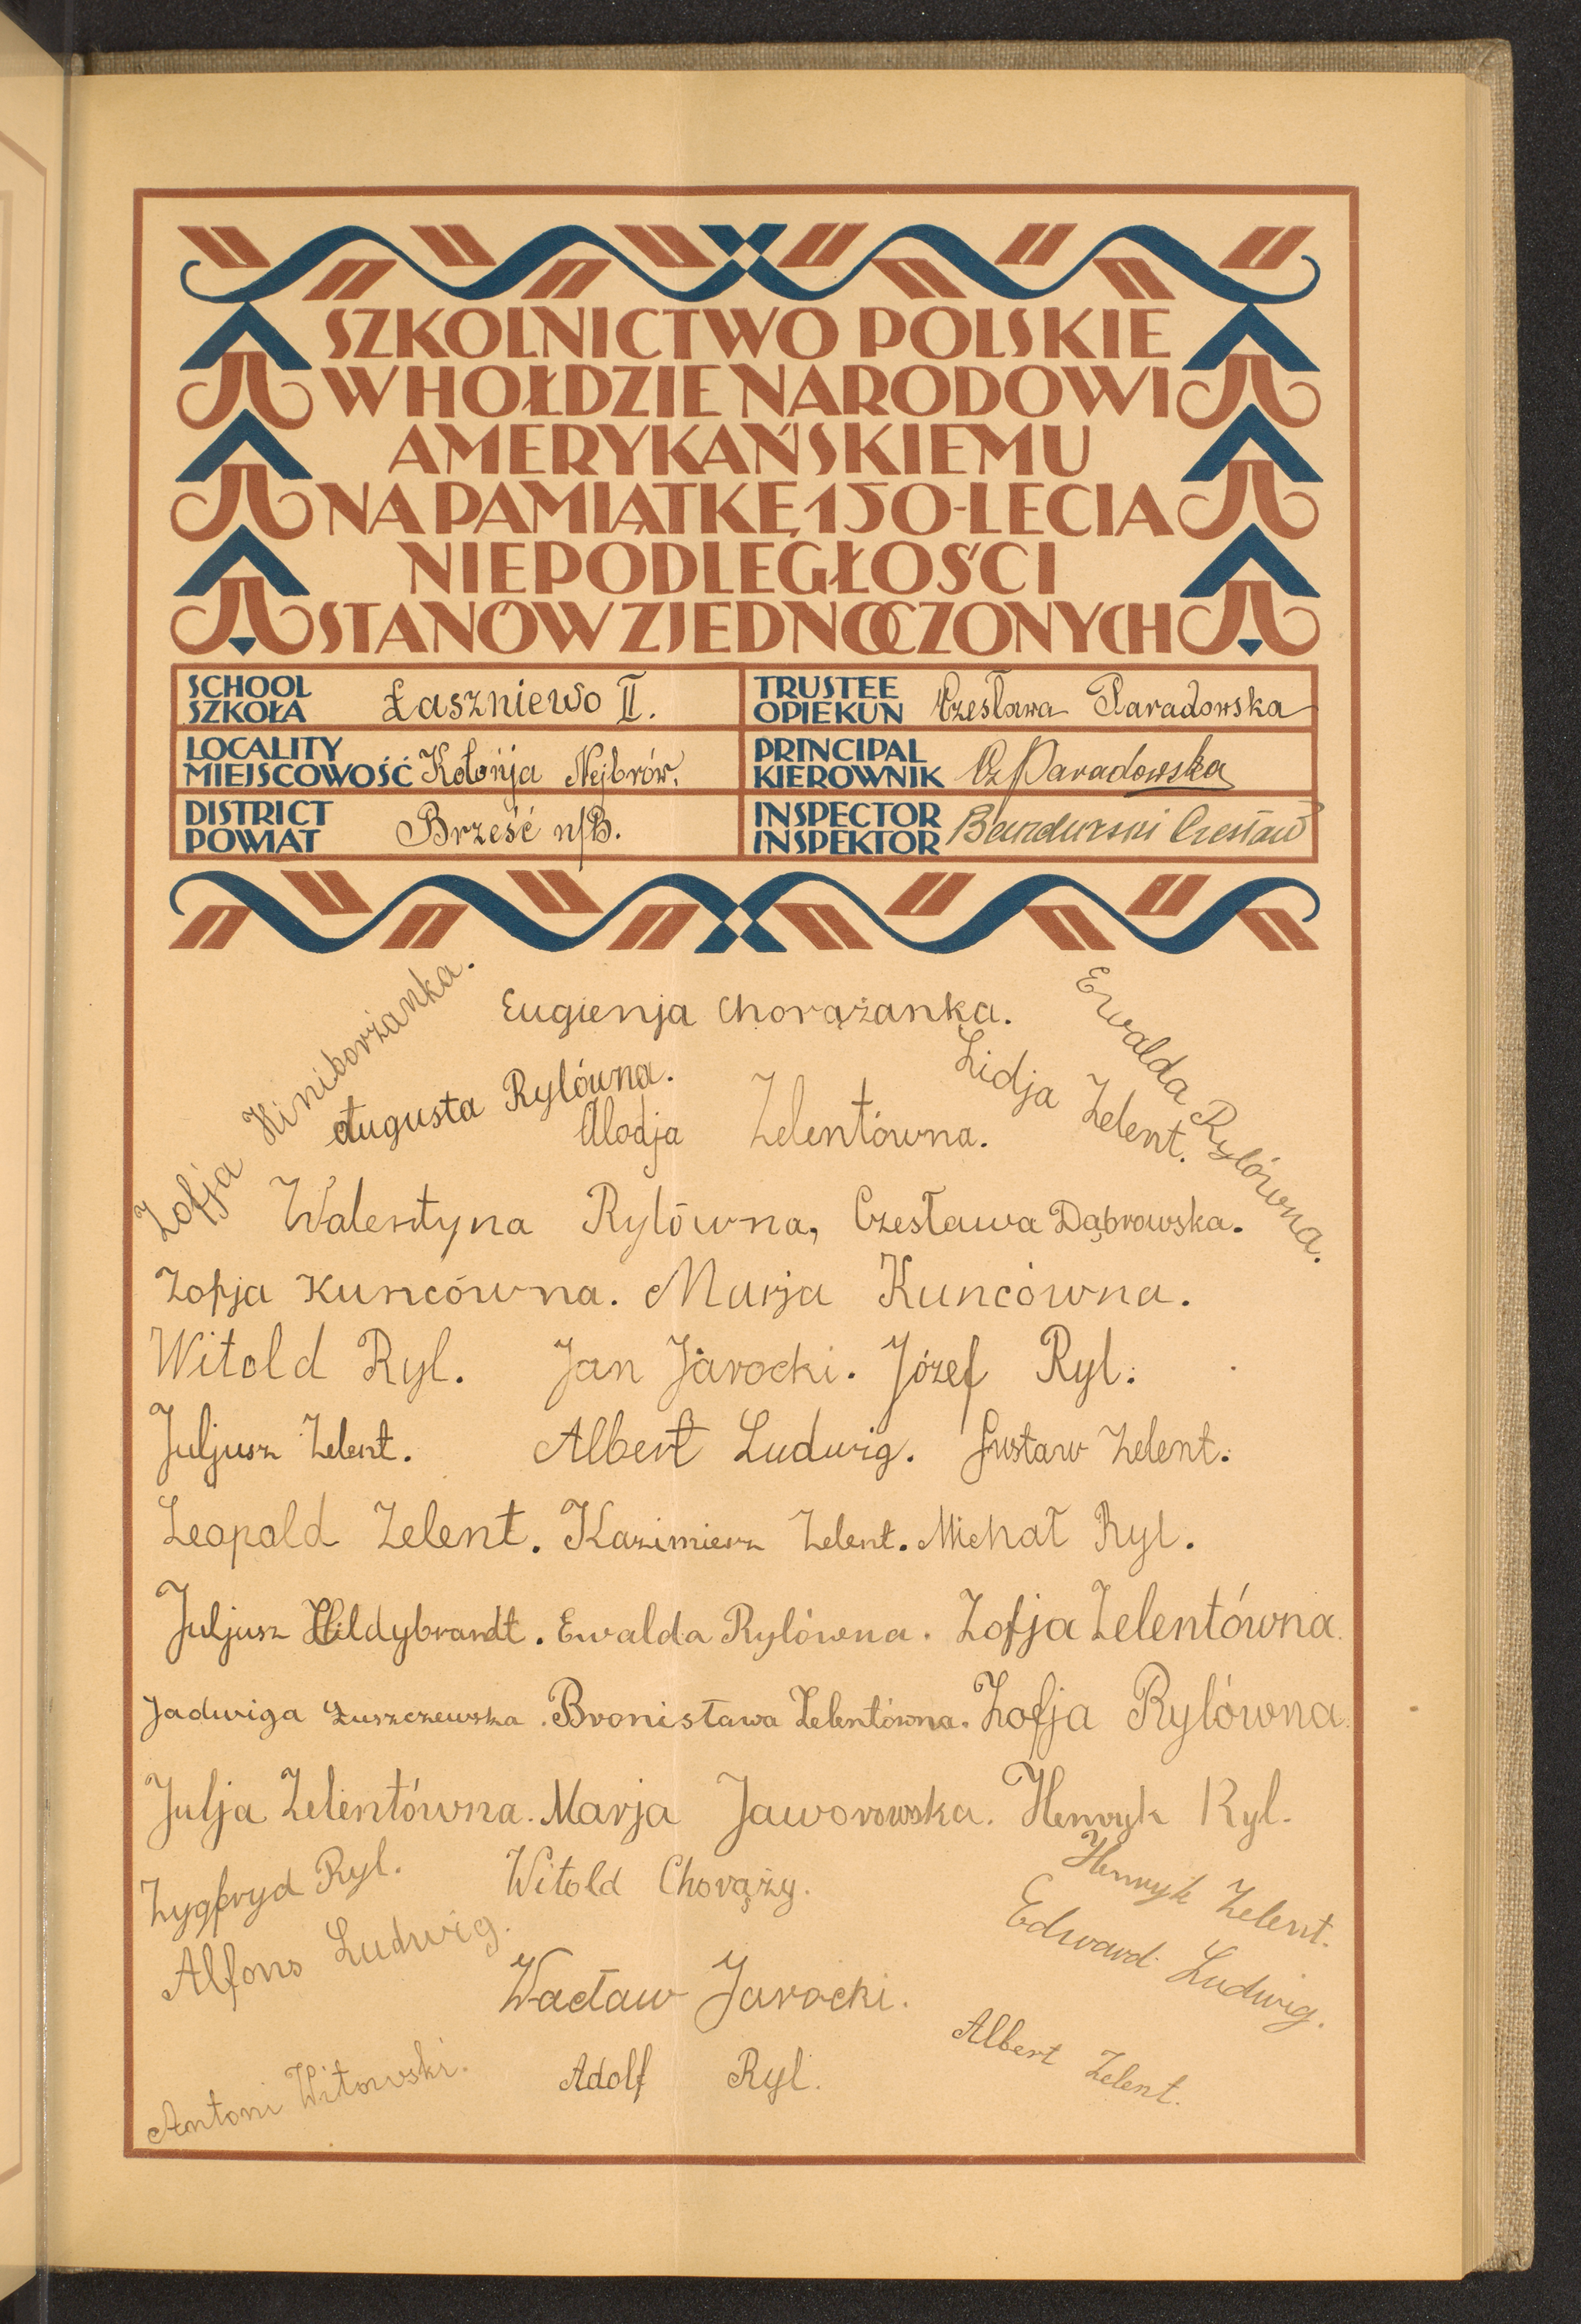 SZKOLNICTWO POLSKIE
W HOŁDZIE NARODOWI
AMERYKAŃSKIEMU
NA PAMIĄTKĘ 150-LECIA
NIEPODLEGŁOŚCI
STANÓW ZJEDNOCZONYCH
SCHOOL
SZKOŁA Łaszniewo II.
TRUSTEE
OPIEKUN Czesława Paradowska
LOCALITY
MIEJSCOWOŚĆ Kolonja Nejbrów.
PRINCIPAL
KIEROWNIK Cz Paradowska
DISTRICT
POWIAT Brześć n/B.
INSPECTOR
INSPEKTOR Bandurski Czesław
Zofja Winiborżanka.
Eugienja Chorążanka.
Ewalda Rylówna.
Augusta Rylówna.
Lidja Zelent.
Alodja Zelentówna.
Walentyna Rylówna, Czesława Dąbrowska.
Zofja Kuncówna. Marja Kuncówna.
Witold Ryl. Jan Jarocki. Józef Ryl.
Juljusz Zelent. Albert Ludwig. Gustaw Zelent.
Leopold Zelent. Kazimierz Zelent. Michał Ryl.
Juljusz Hildybrandt. Ewalda Rylówna. Zofja Zelentówna.
Jadwiga Łuszczewska. Bronisława Zelentówna. Zofja Rylówna.
Julja Zelentówna. Marja Jaworowska. Henryk Ryl.
Zygfryd Ryl. Witold Chorąży. Henryk Zelent.
Alfons Ludwig. Edward Ludwig.
Wacław Jarocki.
Albert Zelent.
Antoni Witowski. Adolf Ryl.